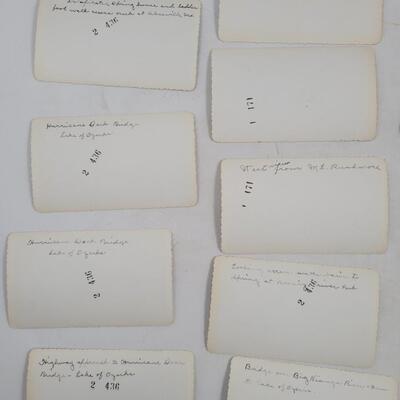 spring house and ladder
foot walk
2 436
Hurricane Deck Bridge
Lake of Ozarks
2 436
Hurricane Deck Bridge
Lake of Ozarks
2 436
Highway
to Hurricane Deck
Bridge - Lake of Ozarks
2 436
1 171
West from Mt. Rushmore
view
1 171
Looking
to
Spring at River Park
2 436
Bridge on Big Niangua River
Lake of Ozarks